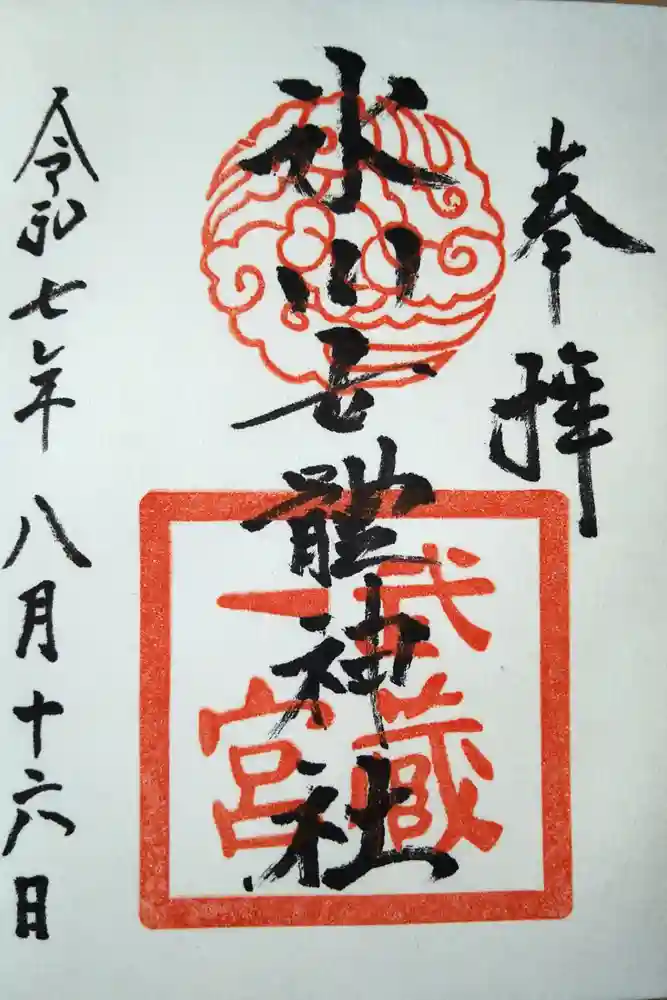 奉拝
氷川女體神社
武蔵
一宮
令和七年八月十六日